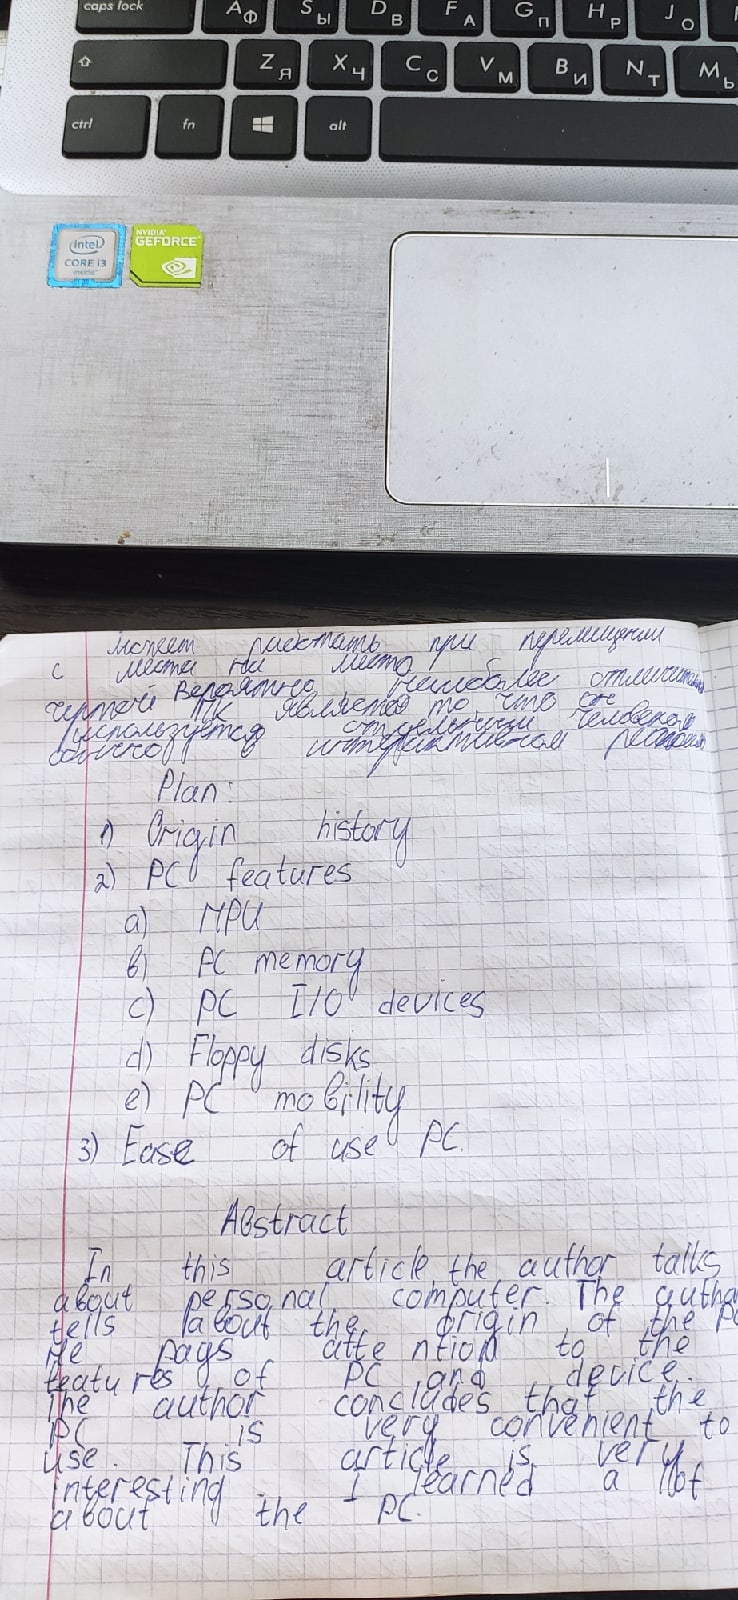 caps lock A Ф S Ы D В F А G П H Р J О
Z Я X Ч C С V М B И N Т M Ь
ctrl fn alt
intel CORE i3 inside
NVIDIA GEFORCE
может работать при перемещении
с места на место
Вероятно наиболее
чертой ПК является то что он
используется отдельным человеком
обычно в интерактивном
Plan:
1) Origin history
2) PC features
a) MPU
b) PC memory
c) PC I/O devices
d) Floppy disks
e) PC mobility
3) Ease of use PC.
Abstract
In this article the author talks
about personal computer. The autho
tells about the origin of the PC
He pays attention to the
features of PC and device.
The author concludes that the
PC is very convenient to
use. This article is very
interesting I learned a lot
about the PC.